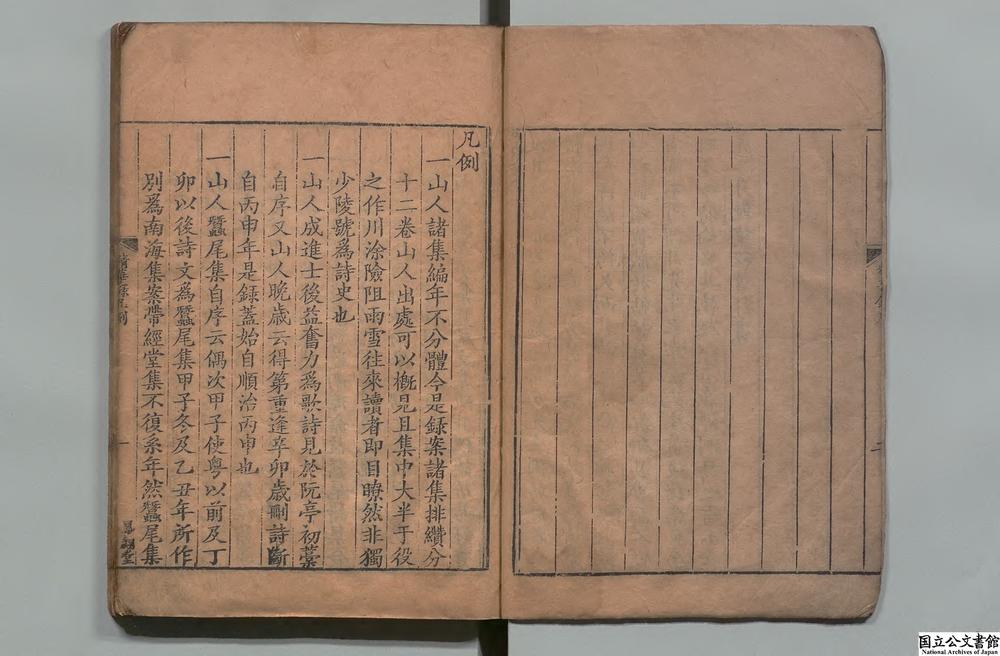 凡例
一山人諸集編年不分體今是録案諸集排纘分
十二卷山人出處可以槪見且集中大半于役
之作川涂險阻雨雪往來讀者即目瞭然非獨
少陵號爲詩史也
一山人成進士後益奮力爲歌詩見於阮亭初藁
自序又山人晚歳云得第重逢辛卯歳刪詩斷
自丙申年是録蓋始自順治丙申也
一山人蠶尾集自序云偶次甲子使粤以前及丁
卯以後詩文爲蠶尾集甲子冬及乙丑年所作
別爲南海集案帶經堂集不復系年然蠶尾集
一
国立公文書館
National Archives of Japan